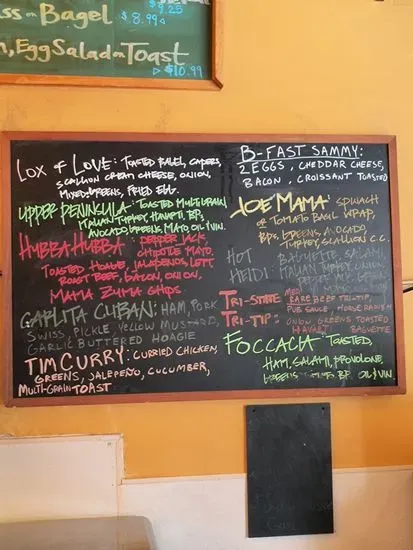 ss on Bagel
$9.25
$8.99
n, Egg Salad on Toast
$10.99
LOX & LOVE: TOASTED BAGEL, CAPERS,
SCALLION CREAM CHEESE, ONION,
MIXED GREENS, FRIED EGG.
UPPER PENINSULA- TOASTED MULTIGRAIN,
ITALIAN TURKEY, HAVARTI, BP'S,
AVOCADO, GREENS, MAYO OIL & VIN.
HUBBA HUBBA: PEPPER JACK,
CHIPOTLE MAYO,
TOASTED HOAGIE, JALAPENOS, LETT,
ROAST BEEF, BACON, ONION,
MAMA ZUMA CHIPS.
GARLITA CUBAN: HAM, PORK
SWISS, PICKLE, YELLOW MUSTARD,
GARLIC & BUTTERED HOAGIE
TIM CURRY: CURRIED CHICKEN,
GREENS, JALAPEÑO, CUCUMBER,
MULTI-GRAIN TOAST
B-FAST SAMMY:
2 EGGS, CHEDDAR CHEESE,
BACON, CROISSANT TOASTED
JOE MAMA: SPINACH
or TOMATO BASIL WRAP,
BP'S, GREENS, AVOCADO,
TURKEY, SCALLION C.C.
HOT
HEIDI:
BAGUETTE, SALAMI,
ITALIAN TURKEY,
TRI-STATE
TRI-TIP:
MED
RARE BEEF TRI-TIP,
PUB SAUCE, HORSERADISH
ONION GREENS TOASTED
HAVARTI BAGUETTE
FOCCACIA- TOASTED,
HAM, SALAMI, PROVOLONE,
GREENS BP OIL & VIN.